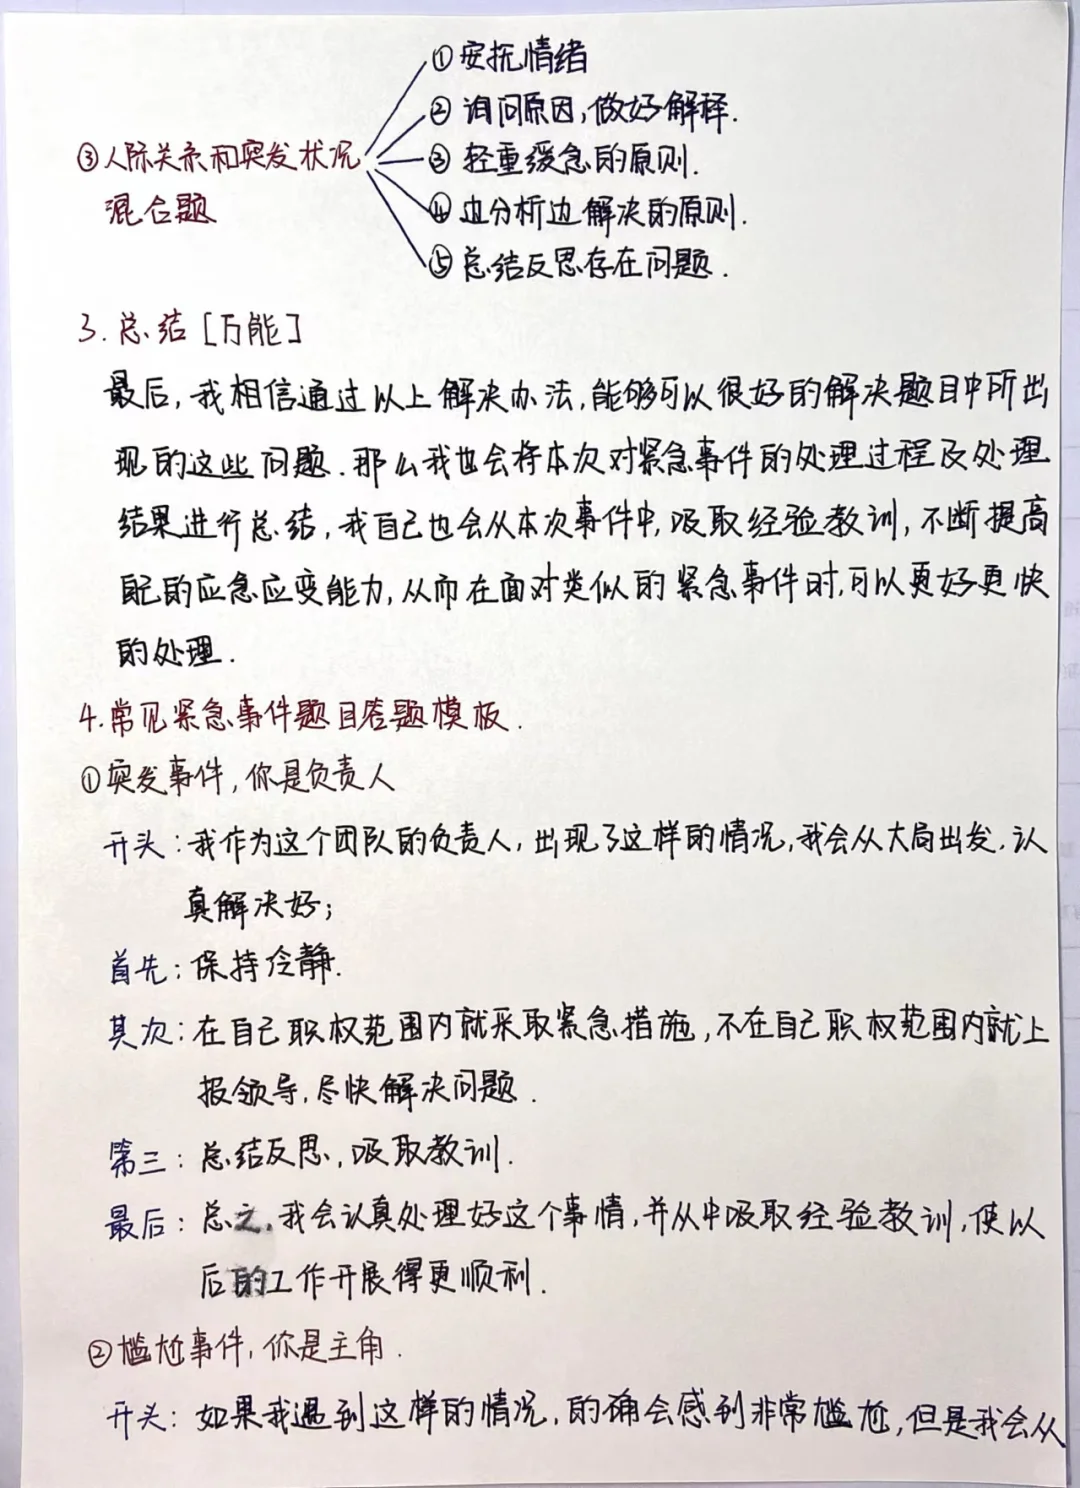 ①安抚情绪
②询问原因,做好解释.
③人际关系和突发状况
③轻重缓急的原则.
混合题
④边分析边解决的原则.
⑤总结反思存在问题.
3.总结[万能]
最后,我相信通过以上解决办法,能够可以很好的解决题目中所出
现的这些问题.那么我也会将本次对紧急事件的处理过程及处理
结果进行总结,我自己也会从本次事件中,吸取经验教训,不断提高
自己的应急应变能力,从而在面对类似的紧急事件时,可以更好更快
的处理.
4.常见紧急事件题目答题模板.
①突发事件,你是负责人
开头:我作为这个团队的负责人,出现了这样的情况,我会从大局出发,认
真解决好;
首先:保持冷静.
其次:在自己职权范围内就采取紧急措施,不在自己职权范围内就上
报领导,尽快解决问题.
第三:总结反思,吸取教训.
最后:总之,我会认真处理好这个事情,并从中吸取经验教训,使以
后的工作开展得更顺利.
②尴尬事件,你是主角.
开头:如果我遇到这样的情况,的确会感到非常尴尬,但是我会从